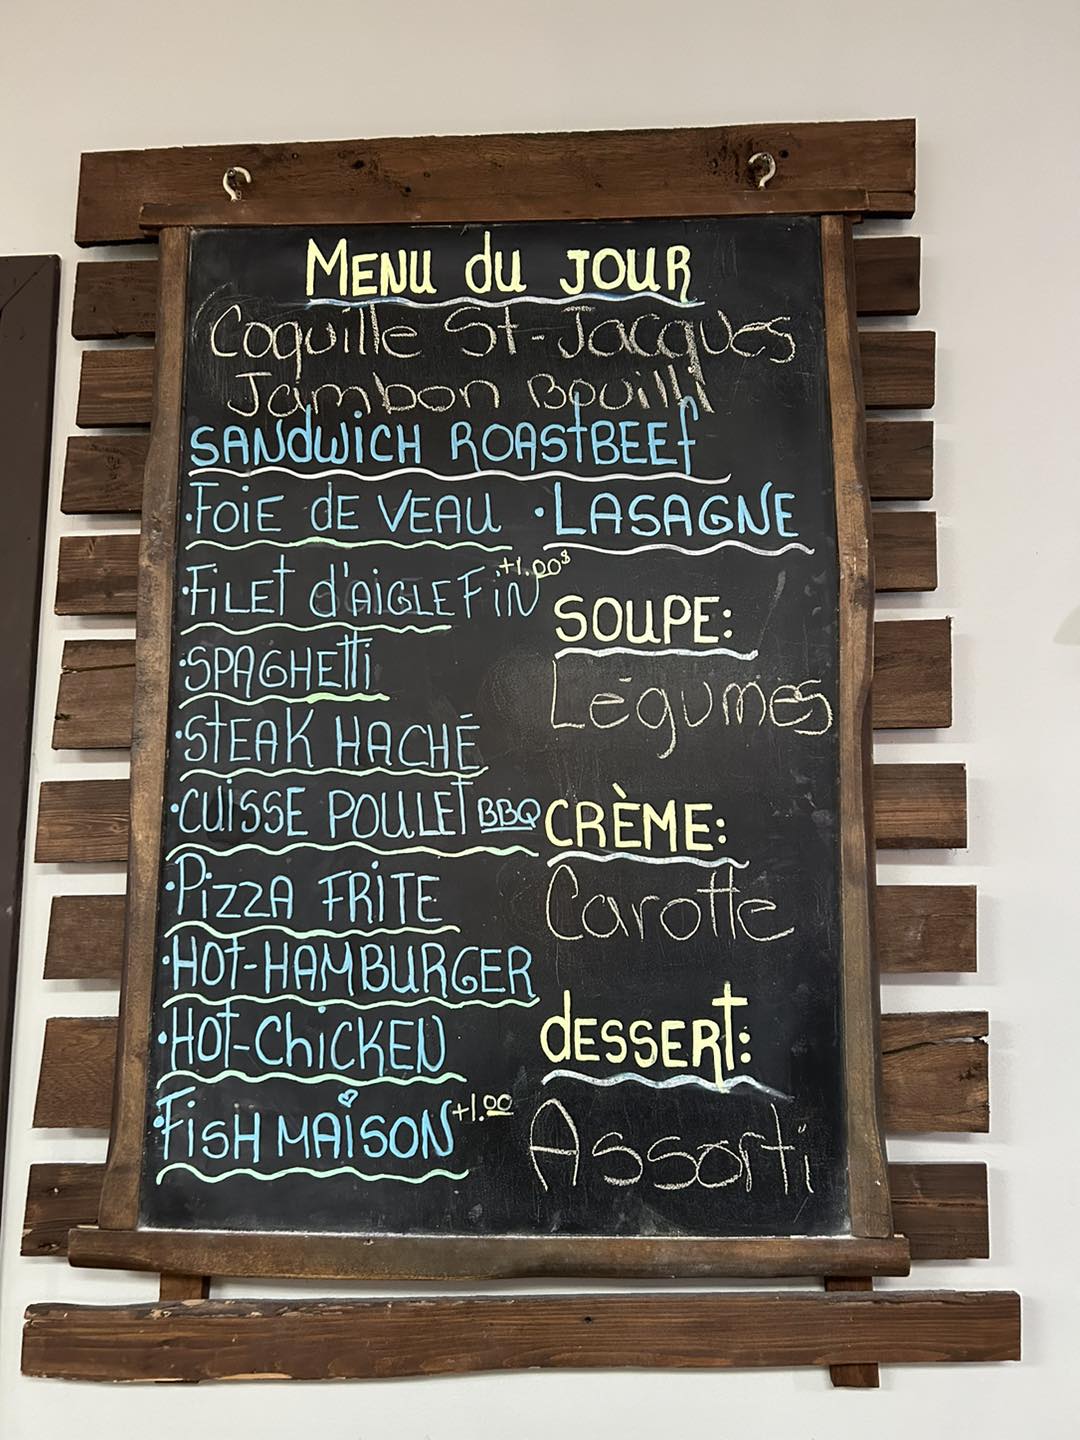 MENU du JOUR
Coquille St-Jacques
Jambon Bouilli
SANDWICH ROASTBEEF
·FOIE DE VEAU ·LASAGNE
·FILET d'AIGLEFIN +1.00$
·SPAGHETTI
·STEAK HACHÉ
·CUISSE POULET BBQ
·PIZZA FRITE
·HOT-HAMBURGER
·HOT-CHICKEN
·FISH MAISON +1.00
SOUPE:
Légumes
CRÈME:
Carotte
dESSERT:
Assorti